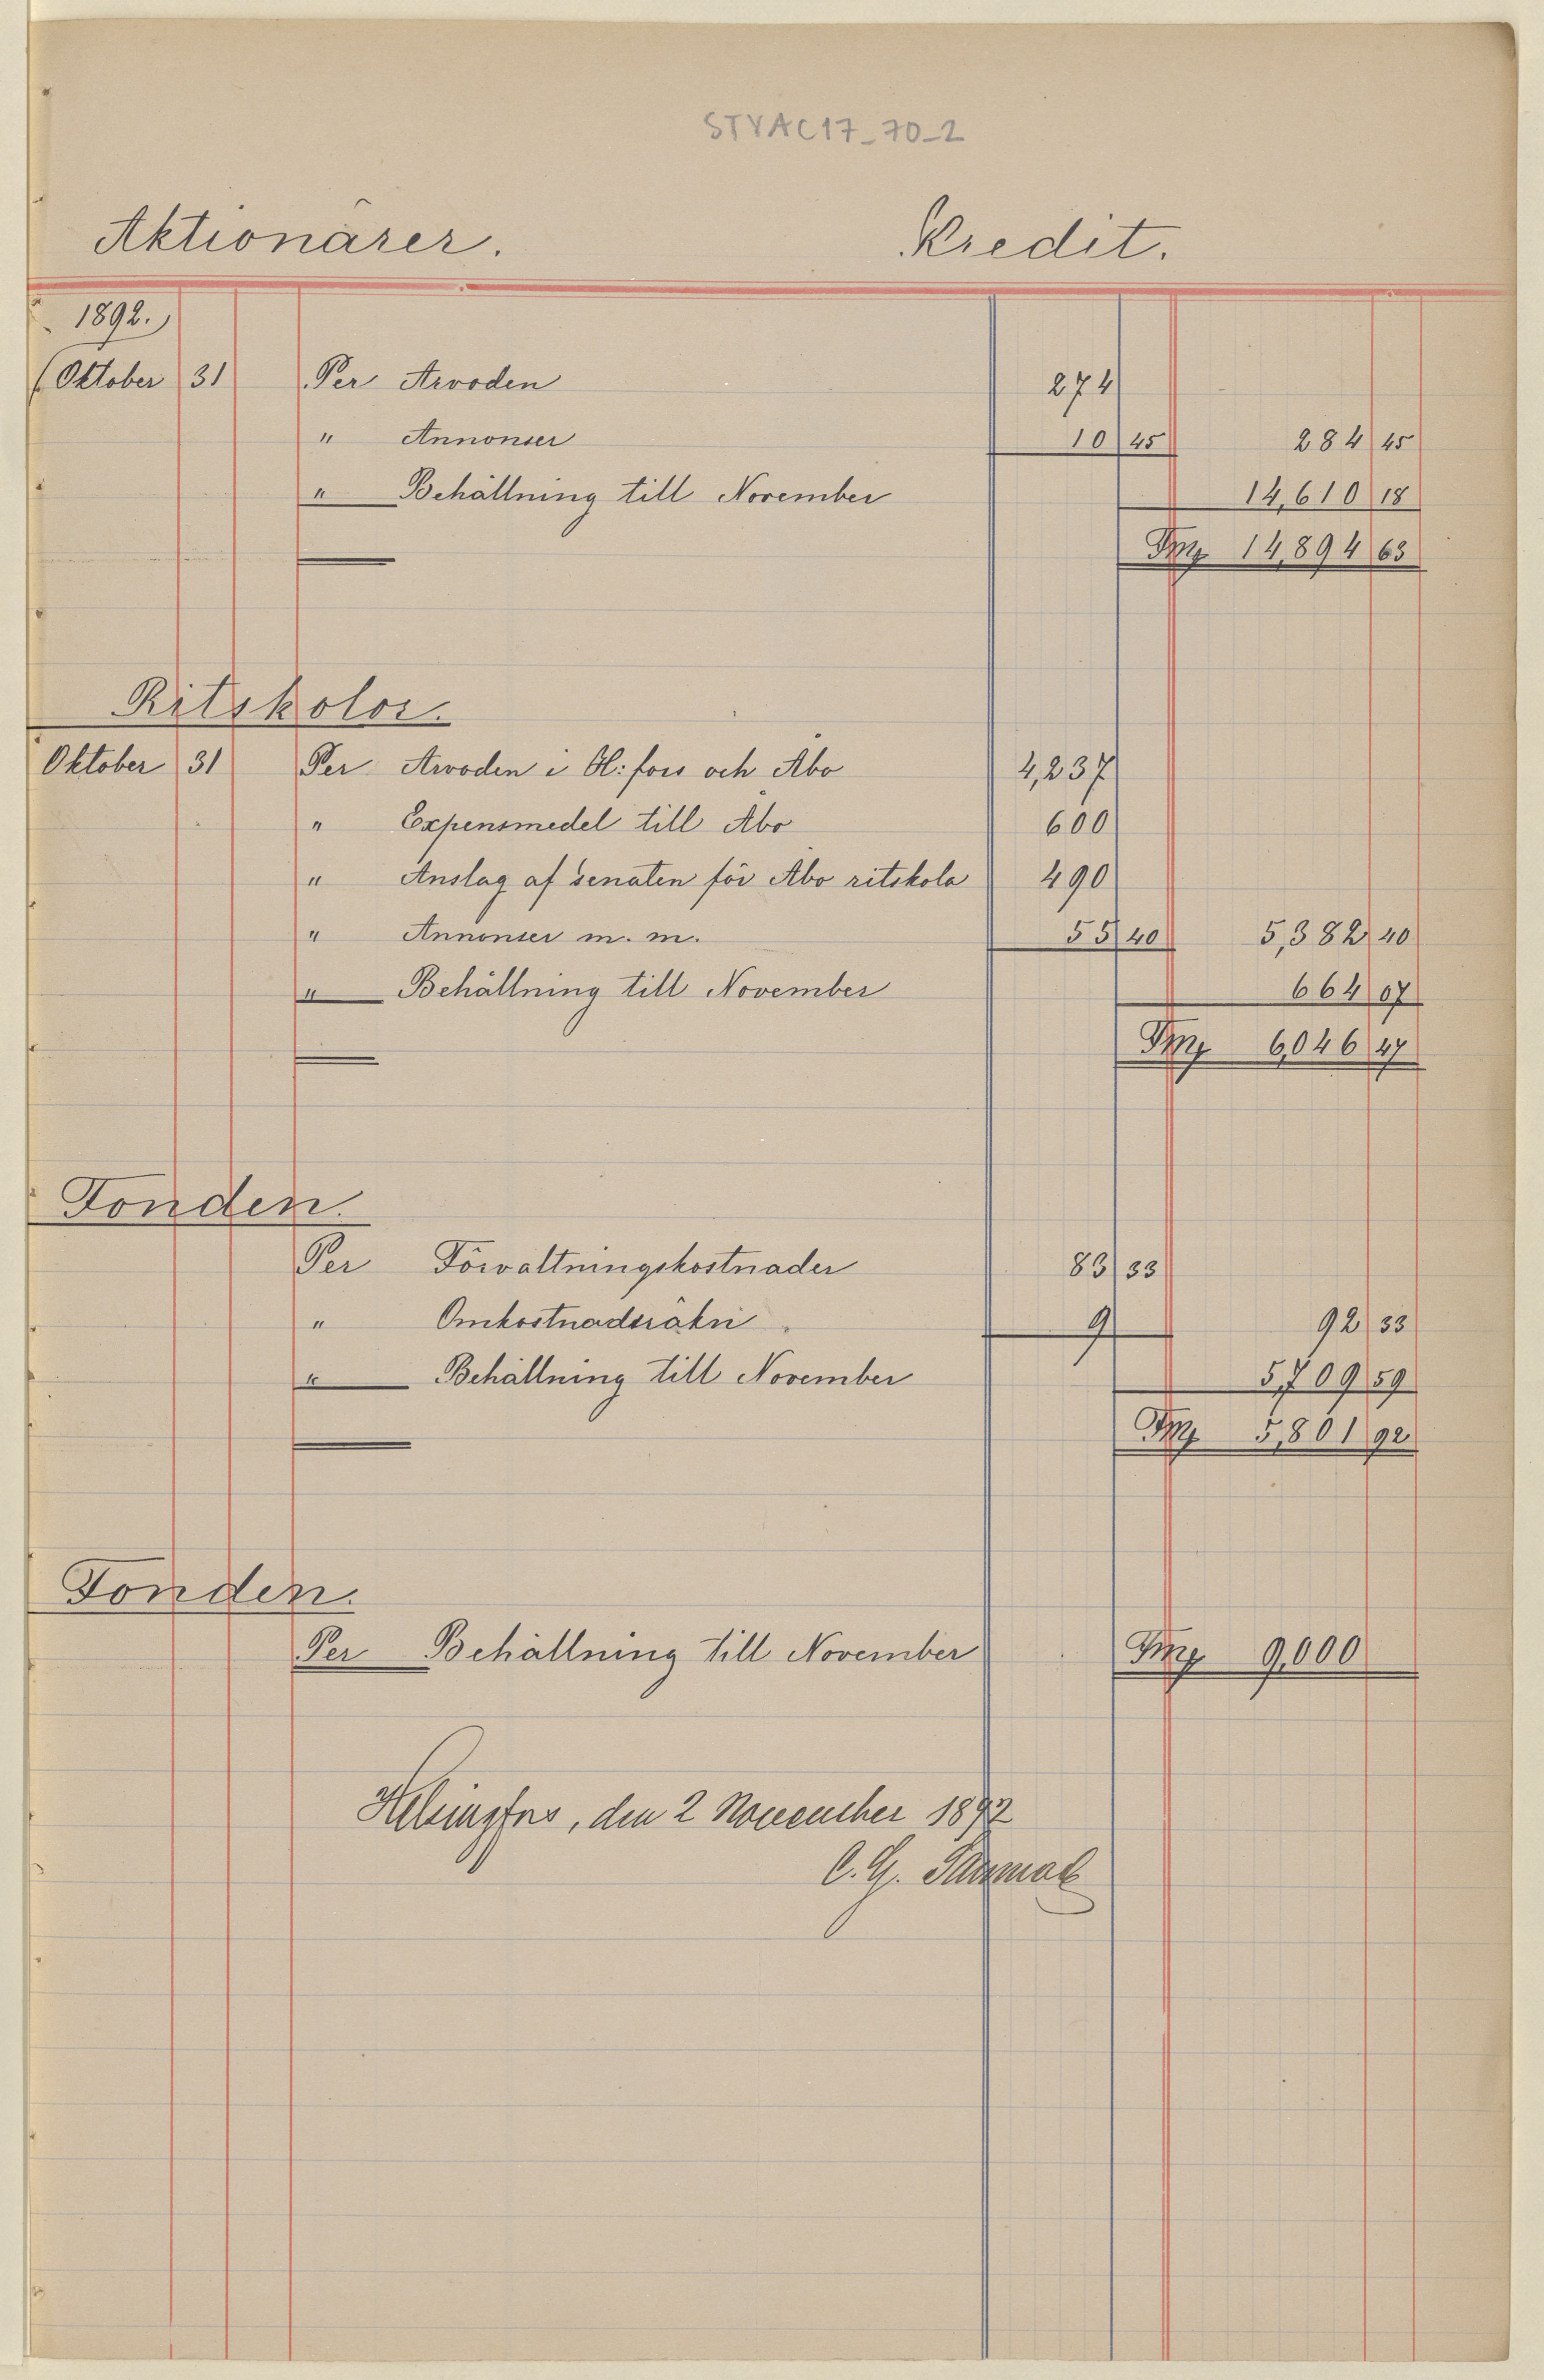 STYAC17_70_2
Aktionärer. Kredit.
1892.
Oktober 31 Per Arvoden 274
" Annonser 10 45 284 45
" Behållning till November 14,610 18
Fmk 14,894 63
Ritskolor.
Oktober 31 Per Arvoden i H:fors och Åbo 4,237
" Expensmedel till Åbo 600
" Anslag af senaten för Åbo ritskola 490
" Annonser m. m. 55 40 5,382 40
" Behållning till November 664 07
Fmk 6,046 47
Fonden.
Per Förvaltningskostnader 83 33
" Omkostnadsräkn 9 92 33
" Behållning till November 5,709 59
Fmk 5,801 92
Fonden.
Per Behållning till November Fmk 9,000
Helsingfors, den 2 November 1892
C. G.